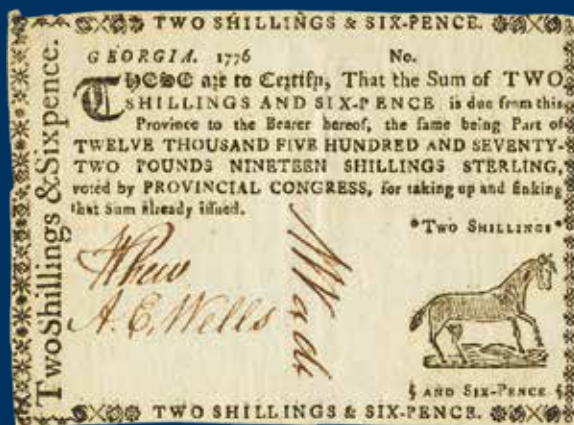 TWO SHILLINGS & SIX-PENCE.
GEORGIA. 1776 No.
THESE are to Certify, That the Sum of TWO
SHILLINGS AND SIX-PENCE is due from this
Province to the Bearer hereof, the same being Part of
TWELVE THOUSAND FIVE HUNDRED AND SEVENTY-
TWO POUNDS NINETEEN SHILLINGS STERLING,
voted by PROVINCIAL CONGRESS, for taking up and sinking
that Sum already issued.
Two Shillings & Sixpence.
*TWO SHILLINGS*
A. E. Wells
§ AND SIX-PENCE §
TWO SHILLINGS & SIX-PENCE.